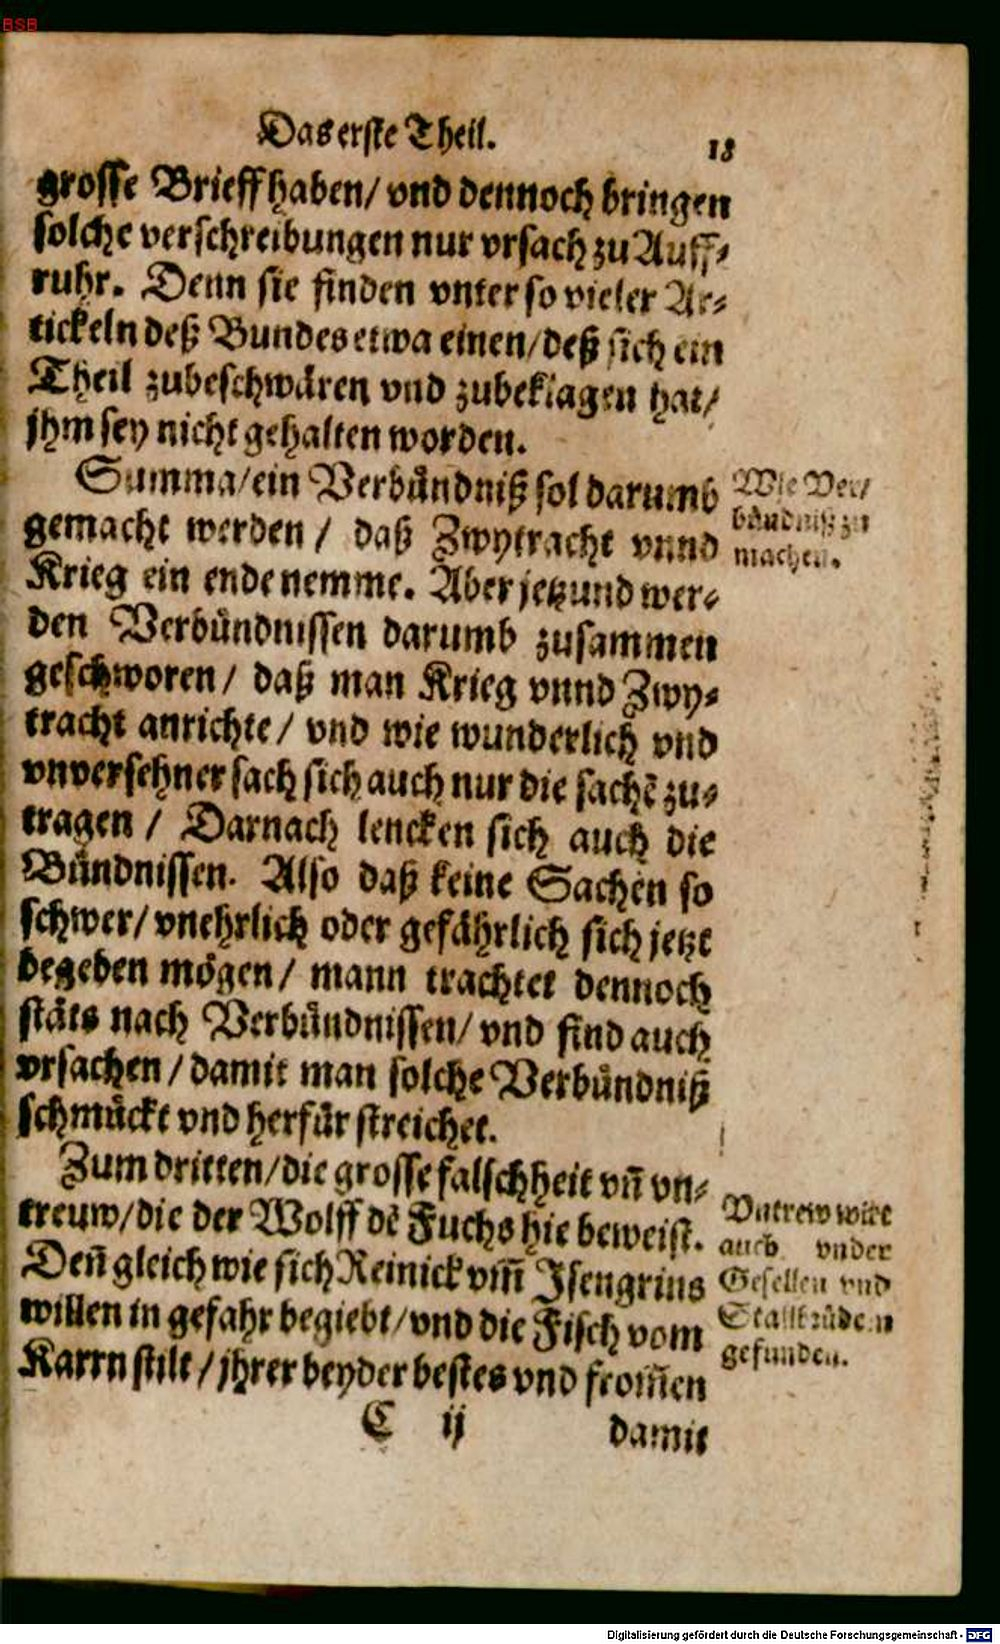 BSB
Das erste Theil.
18
grosse Brieff haben/ vnd dennoch bringen
solche verschreibungen nur vrsach zu Auff⸗
ruhr. Denn sie finden vnter so vieler Ar⸗
tickeln deß Bundes etwa einen/ deß sich ein
Theil zubeschwären vnd zubeklagen hat/
jhm sey nicht gehalten worden.
Summa/ ein Verbůndniß sol darumb
gemacht werden / daß Zwytracht vnnd
Krieg ein ende nemme. Aber jetzund wer⸗
den Verbůndnissen darumb zusammen
geschworen / daß man Krieg vnnd Zwy⸗
tracht anrichte / vnd wie wunderlich vnd
vnversehner sach sich auch nur die sachē zu⸗
tragen / Darnach lencken sich auch die
Bůndnissen. Also daß keine Sachen so
schwer/ vnehrlich oder gefährlich sich jetzt
begeben mögen/ mann trachtet dennoch
stäts nach Verbůndnissen/ vnd find auch
vrsachen / damit man solche Verbůndniß
schmůckt vnd herfůr streichet.
Zum dritten/ die grosse falschheit vñ vn⸗
treuw/ die der Wolff dē Fuchs hie beweist.
Deñ gleich wie sich Reinick vm̃ Isengrins
willen in gefahr begiebt/ vnd die Fisch vom
Karrn stilt / jhrer beyder bestes vnd from̃en
C ij
damit
Wie Ver/
bůndniß zu
machen.
Vntrew wirt
auch vnder
Gesellen vnd
Stallbrüdern
gefunden.
Digitalisierung gefördert durch die Deutsche Forschungsgemeinschaft - DFG